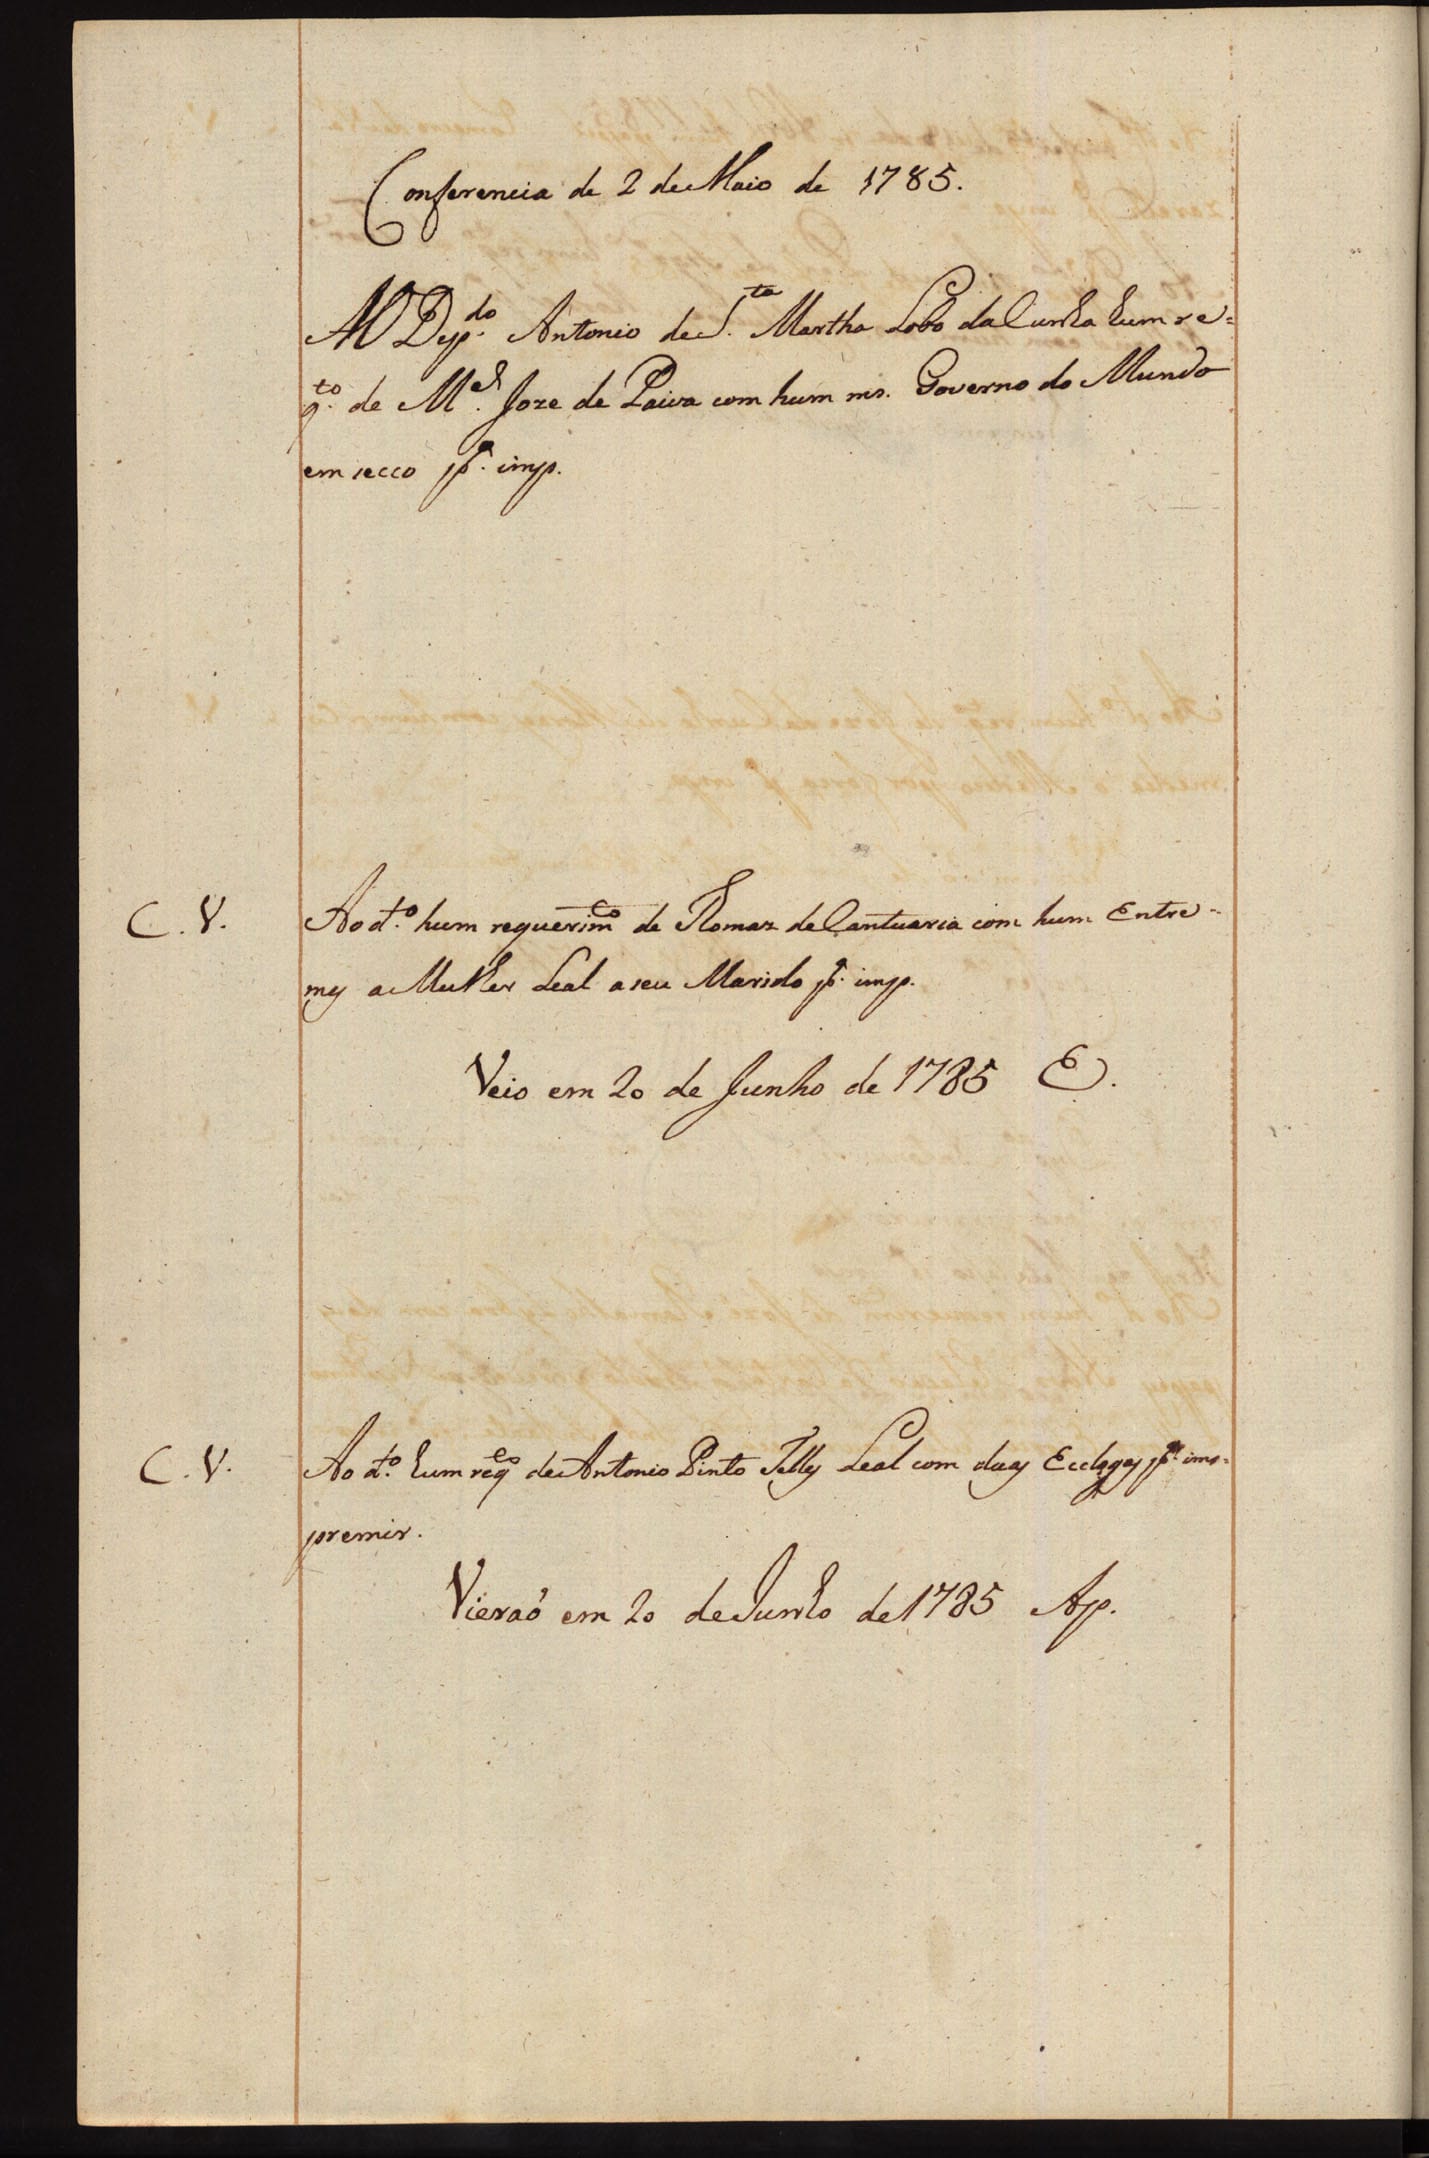 Conferencia de 2 de Maio de 1785.
Ao Dep.do Antonio de S.ta Martha Lobo da Cunha hum re=
q.to de M.el Joze de Paiva com hum ms. Governo do Mundo
em secco p.a imp.
C. V. Ao d.to hum requerim.to de Romaz de Cantuaria com hum Entre-
mes a Mulher Leal a seu Marido p.a imp.
Veio em 20 de Junho de 1785 E.
C. V. Ao d.to hum req.to de Antonio Pinto Telles Leal com duas Eclogas p.a im-
premir.
Vieraõ em 20 de Junho de 1785 Ap.